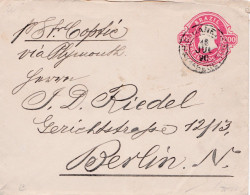 p. SS. Coptic
via Plymouth
BRAZIL
Herrn
J. D. Riedel
Gerichtstrasse 12/13,
Berlin. N.